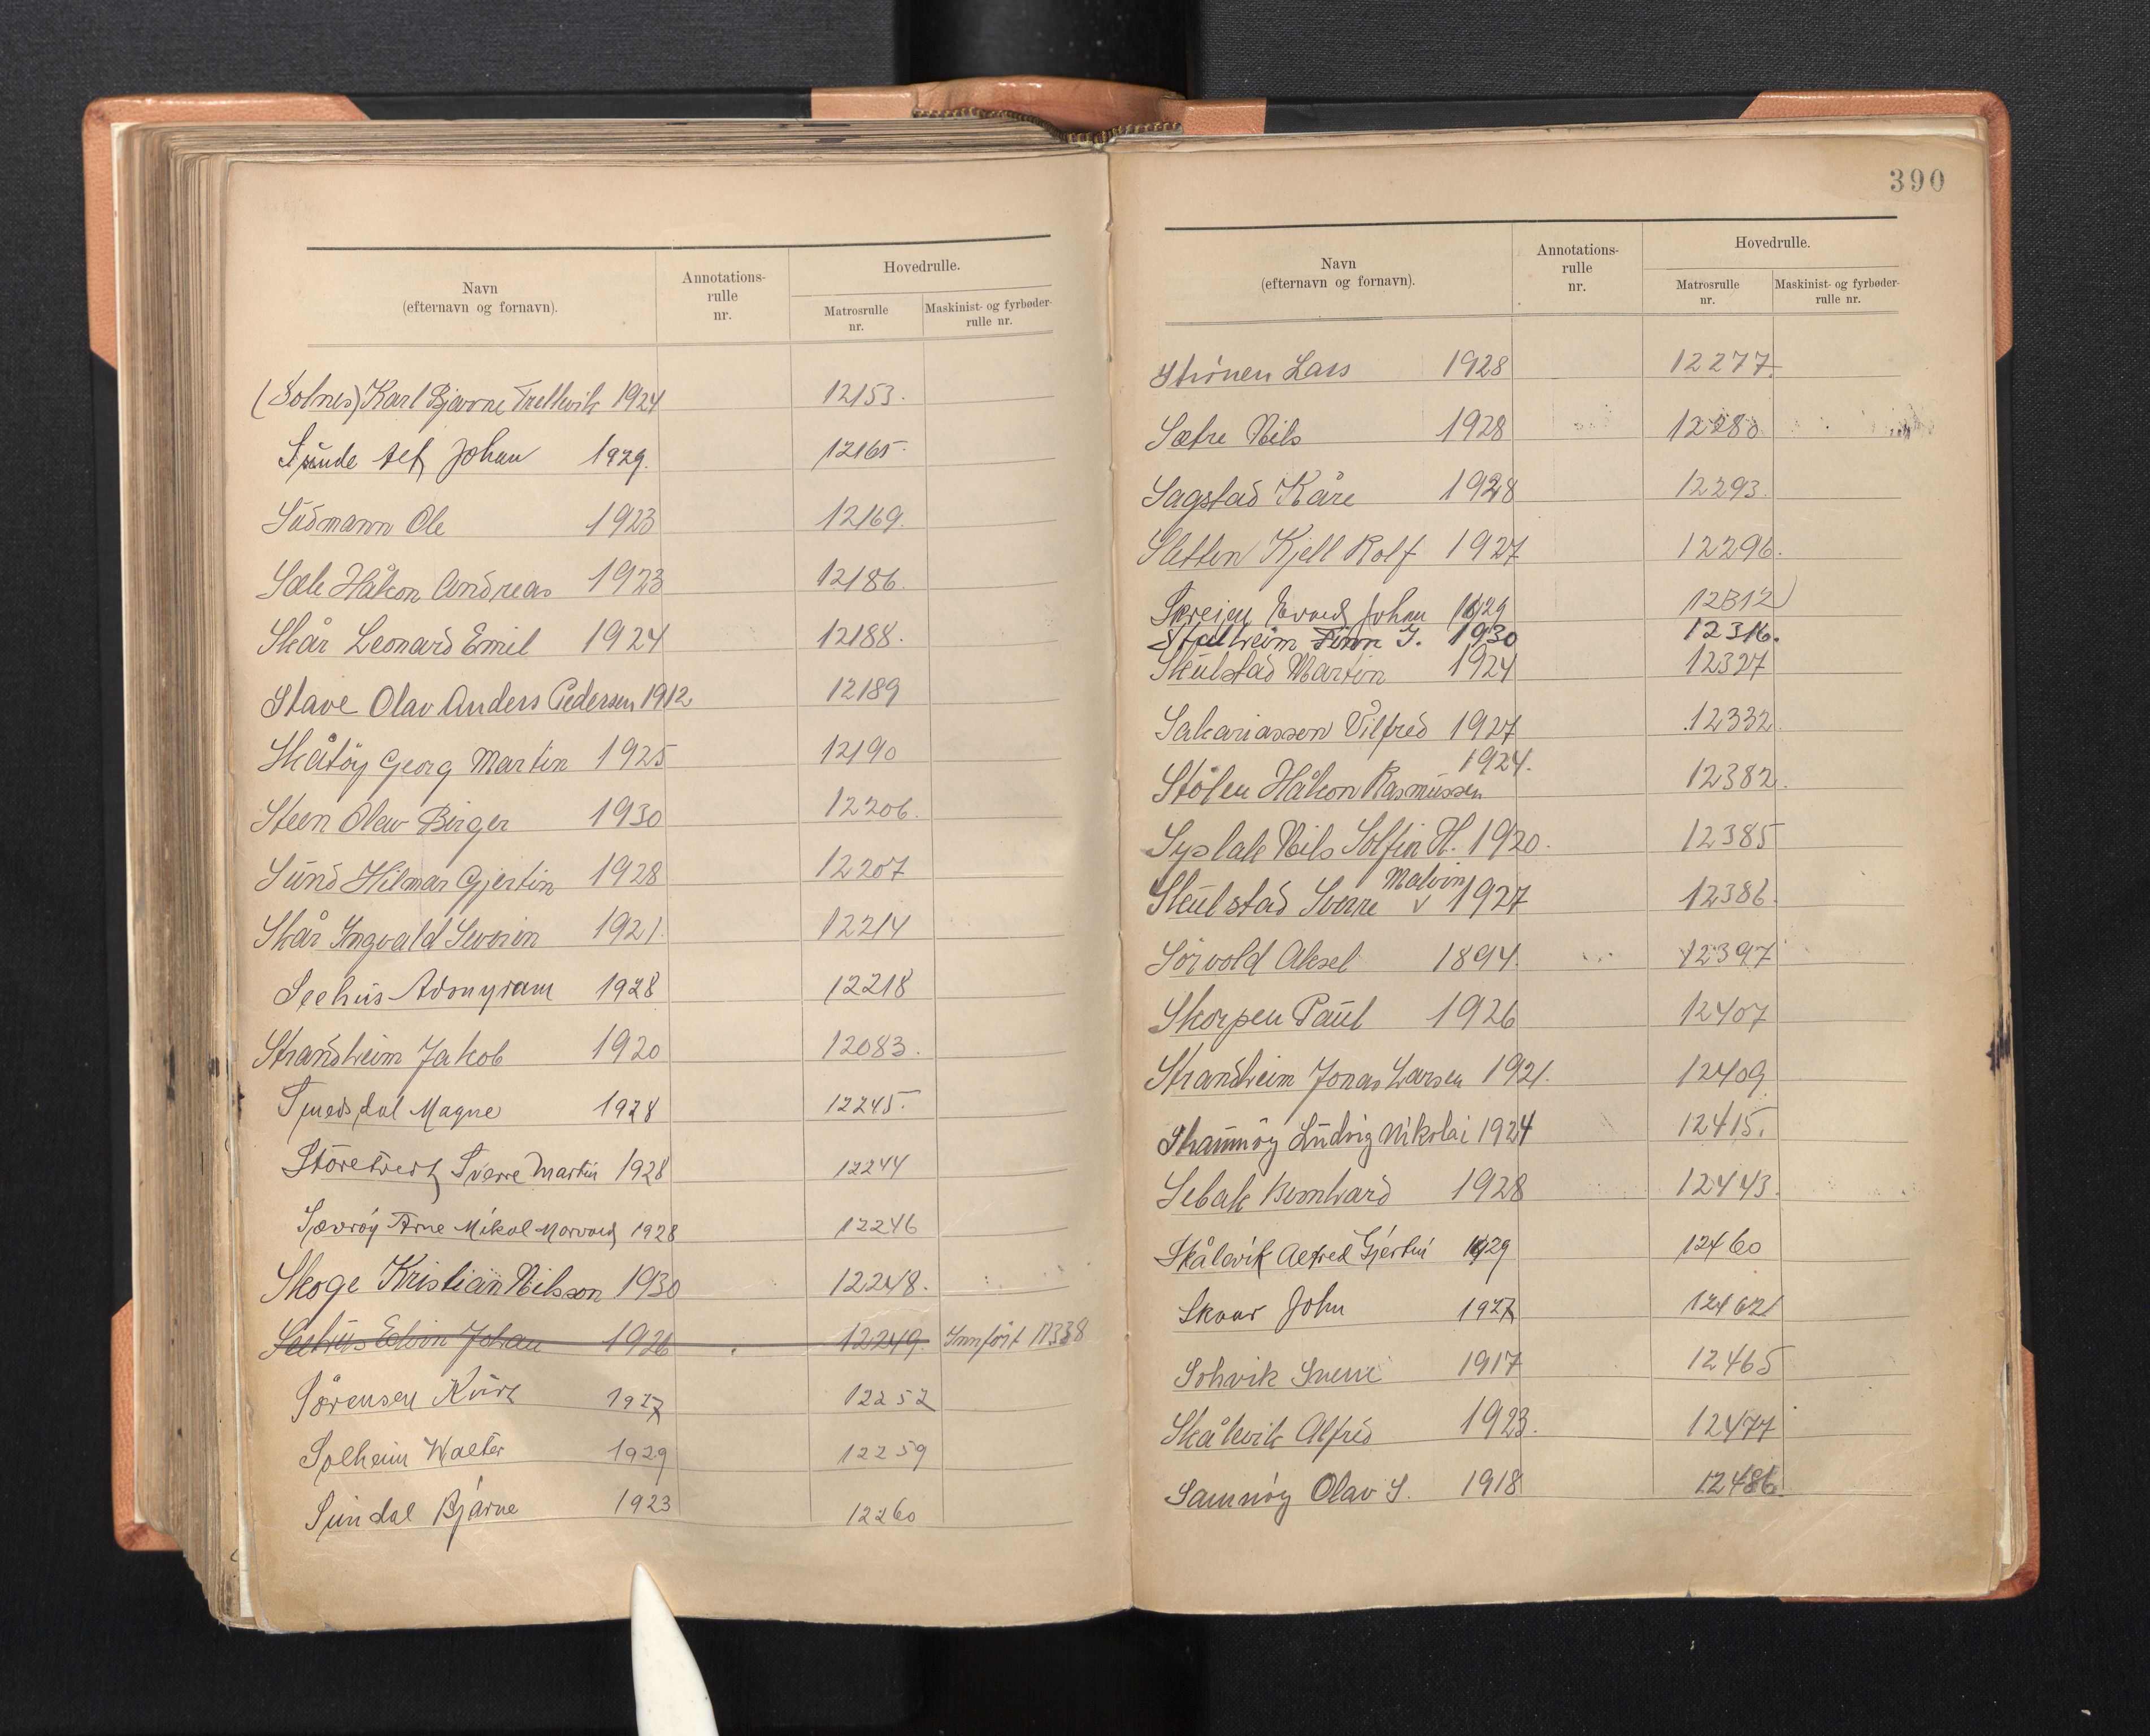 Navn
(efternavn og fornavn).
Annotations-
rulle
nr.
Hovedrulle.
Matrosrulle
nr.
Maskinist- og fyrbøder-
rulle nr.
(Solnes) Karl Bjarne Trellevik 1924 12153.
Sunde Alf Johan 1929. 12165.
Südmann Ole 1923 12169.
Sæle Håkon Andreas 1923 12186.
Skår Leonard Emil 1924 12188.
Stave Olav Anders Pedersen 1912 12189
Skåtøy Georg Martin 1925 12190
Steen Olav Birger 1930 12206.
Sund Hilmar Gjertin 1928 12207
Skår Ingvald Severin 1921. 12214
Seehus Adonyram 1928 12218
Strandheim Jakob 1920 12083.
Smedsdal Magne 1928 12245.
Storetvedt Sverre Martin 1928 12244
Sævrøy Arne Mikal 1928 12246
Skoge Kristian Nilsson 1930 12248.
Seehus Edvin Johan 1926 12249. Innført 11338
Sørensen Kurt 1927 12252
Solheim Walter 1929 12259
Sundal Bjarne 1923 12260
390
Navn
(efternavn og fornavn).
Annotations-
rulle
nr.
Hovedrulle.
Matrosrulle
nr.
Maskinist- og fyrbøder-
rulle nr.
Strønen Lars 1928 12277.
Sætre Nils 1928 12280
Sagstad Kåre 1928 12293.
Sletten Kjell Rolf 1927 12296.
Skreien Johan 1929 12312
Stalheim Finn J. 1930 12316.
Skulstad Martin 1924 12327
Sakariassen Vilfred 1927 12332.
1924.
Stølen Håkon Rasmussen 12382.
Syslak Nils Solfin H. 1920. 12385
Malvin
Skulstad Sverre v 1927 12386.
Sørvold Aksel 1894. 12397
Skorpen Paul 1926 12407
Strandheim Jonas Larsen 1921. 12409
Skaunøy Ludvig Nikolai 1924 12415.
Sebak Bernhard 1928 12443.
Skålevik Alfred Gjertin 1929 12460
Skaar John 1927 12462
Solvik Sverre 1917 12465
Skålevik Alfred 1923. 12477
Samnøy Olav S. 1918 12486.